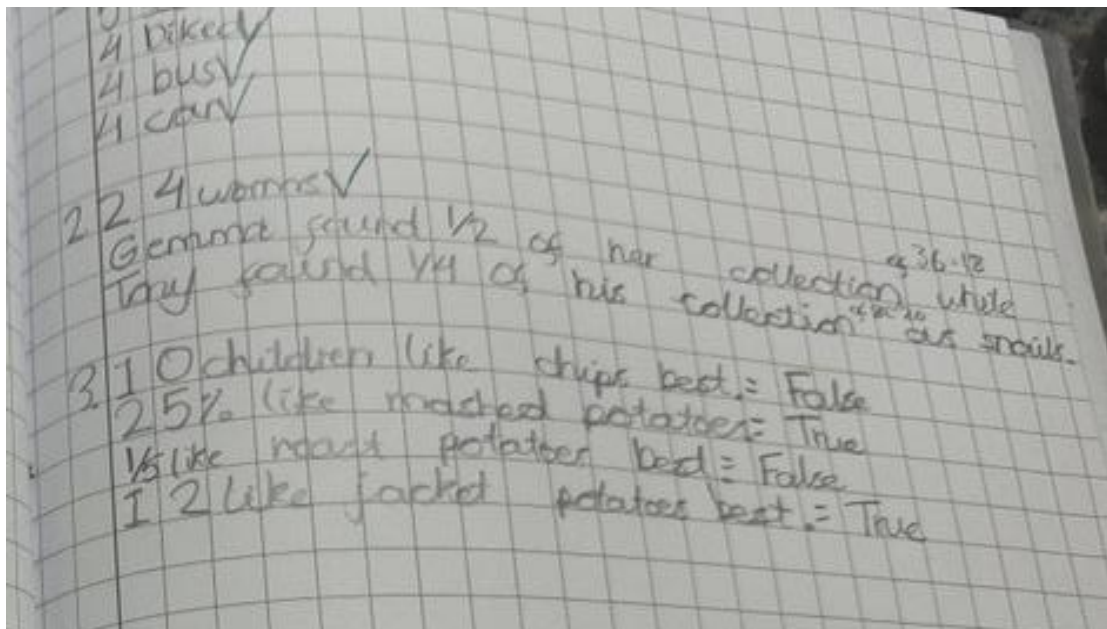 4 biked✓
4 bus✓
4 car✓
2 24 worms✓
Gemma found 1/2 of her collection, while
Tony found 1/4 of his collection as snails.
3. 10 children like chips best. = False
25% like mashed potatoes = True
1/5 like roast potatoes best = False
12 like jacket potatoes best. = True